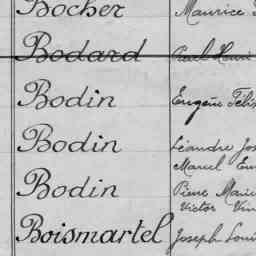 Bocher Maurice
Bodard Paul Henri
Bodin Eugène Félix
Bodin Léandre Jos
Marcel Eu
Bodin Pierre Marie
Victor Vin
Boismartel Joseph Loui